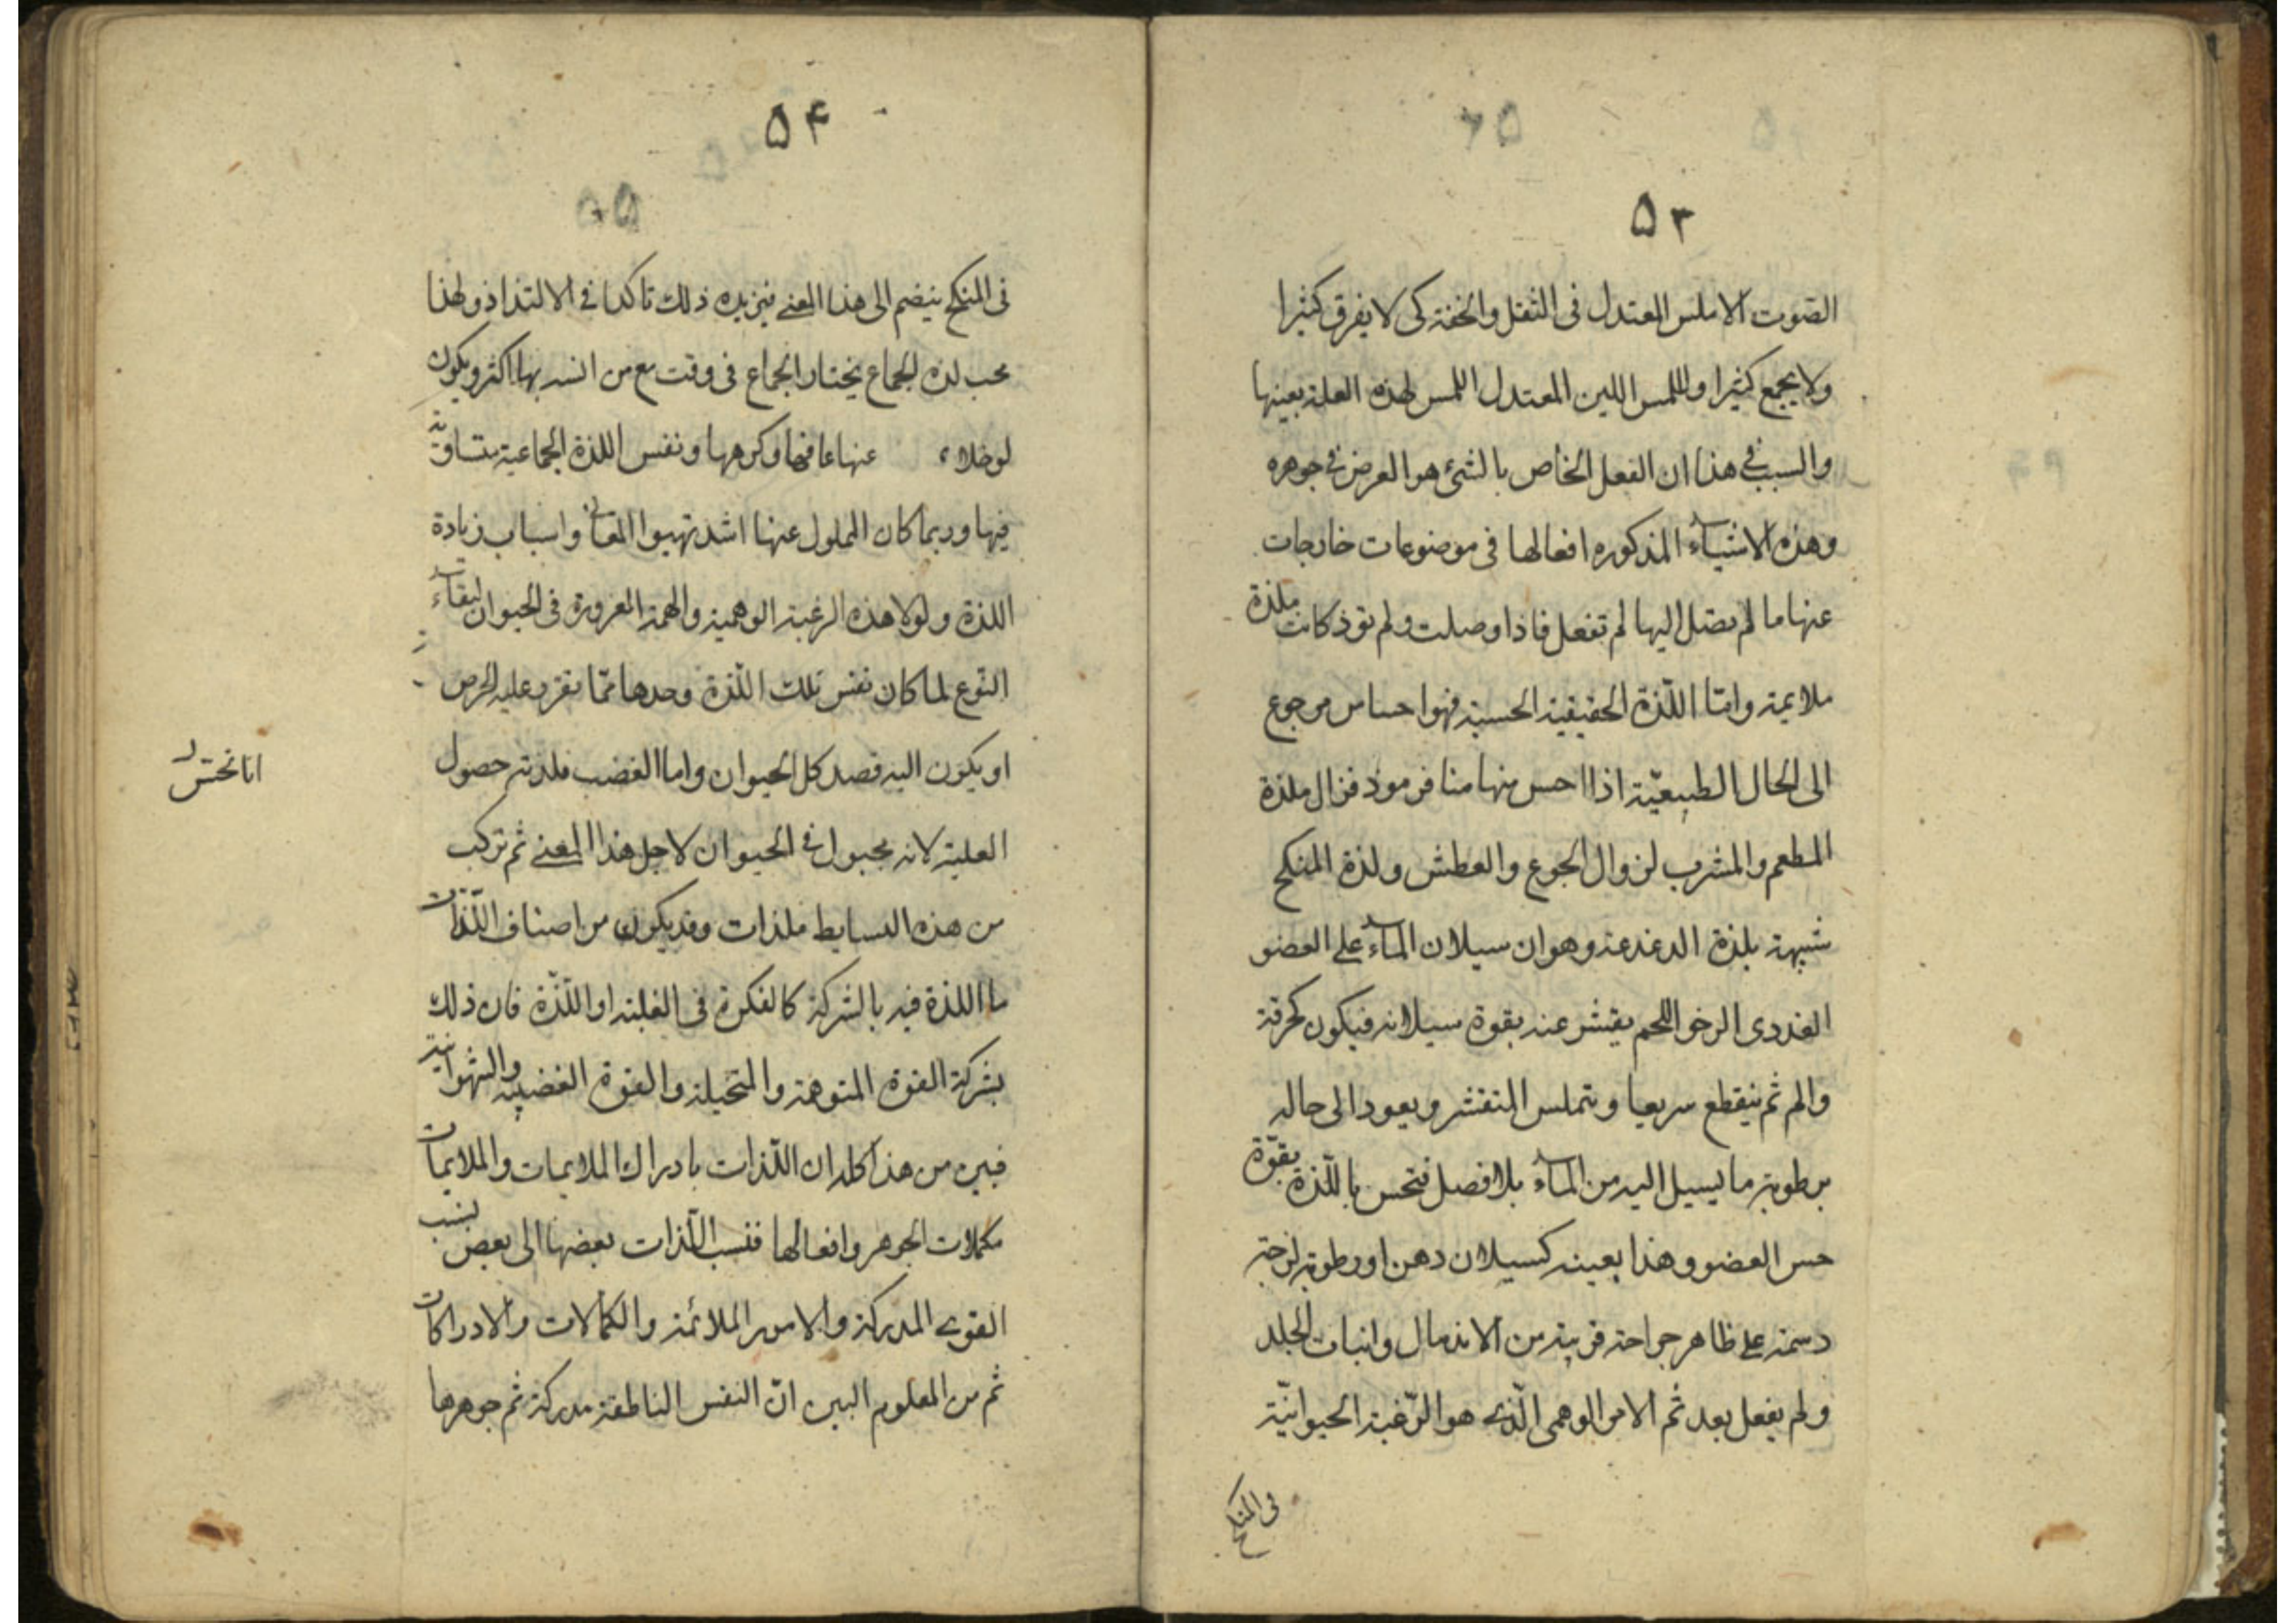 ۵۳
الصوت الاملس المعتدل فى الثقل والخفة كى لا يفرق كثيرا
ولا يجمع كثيرا وللمس اللين المعتدل اللمس لهذه العلة بعينها
والسبب فى هذا ان الفعل الخاص بالشئ هو الغرض فى جوهره
وهذه الاشياء المذكوره افعالها فى موضوعات خارجات
عنها ما لم يصل اليها لم تفعل فاذا وصلت ولم توذ كانت ملذة
ملايمة وامّا اللّذة الحقيقية الحسية فهو احساس مرجوع
الى الحال الطبيعيّة اذا احس منها منافر موذ فزال ملذة
المطعم والمشرب لزوال الجوع والعطش ولذة المنكح
شبيهة بلذة الدغدغة وهو ان سيلان الماء على العضو
الغددى الرخو اللحم يقشر عنه بقوة سيلانه فيكون كحرقة
والم ثم ينقطع سريعا ويتملس المتقشر ويعود الى حاله
برطوبة ما يسيل اليه من الماء بلا فصل فتحس باللّذة بقوّة
حس العضو وهذا بعينه كسيلان دهن او رطوبة لزجة
دسمة على ظاهر جراحة قريبة من الاندمال وانبات الجلد
ولم يفعل بعد ثم الامر الوهمى الّذى هو الرّغبة الحيوانيّة
فى المنكح
۵۴
فى المنكح ينضم الى هذا المعنى فيزيده ذلك تاكدا فى الالتذاذ ولهذا
محب لذه الجماع يختار الجماع فى وقت مع من انسه بها اكثر ويكون
لو خلاء عنها عافها وكرهها ونفس اللذة الجماعية متساوية
فيها وربما كان المملول عنها اشد تهيوا لمعانى واسباب زيادة
اللذة ولولا هذه الرغبة الوهمية والهمة المغروزة فى الحيوان لبقاء
النّوع لما كان نفس تلك اللّذة وحدها ممّا يقرر عليه الحرص
او يكون اليه قصد كل الحيوان واما الغضب فلذته حصول
الغلبة لانه مجبول فى الحيوان لاجل هذا المعنى ثم تركب
من هذه البسايط ملذات وقد يكون من اصناف اللّذات
ما اللذة فيه بالشركة كالفكرة فى الغلبة او اللّذة فان ذلك
بشركة القوة المتوهمة والمتخيلة والقوة الغضبية والشهوانية
فبين من هذا كله ان اللّذات بادراك الملايمات والملايمات
مكملات الجوهر وافعالها فنسب اللّذات بعضها الى بعض بنسب
القوى المدركة والامور الملائمة والكمالات والادراكات
ثم من المعلوم البين انّ النفس الناطقة مدركة ثم جوهرها